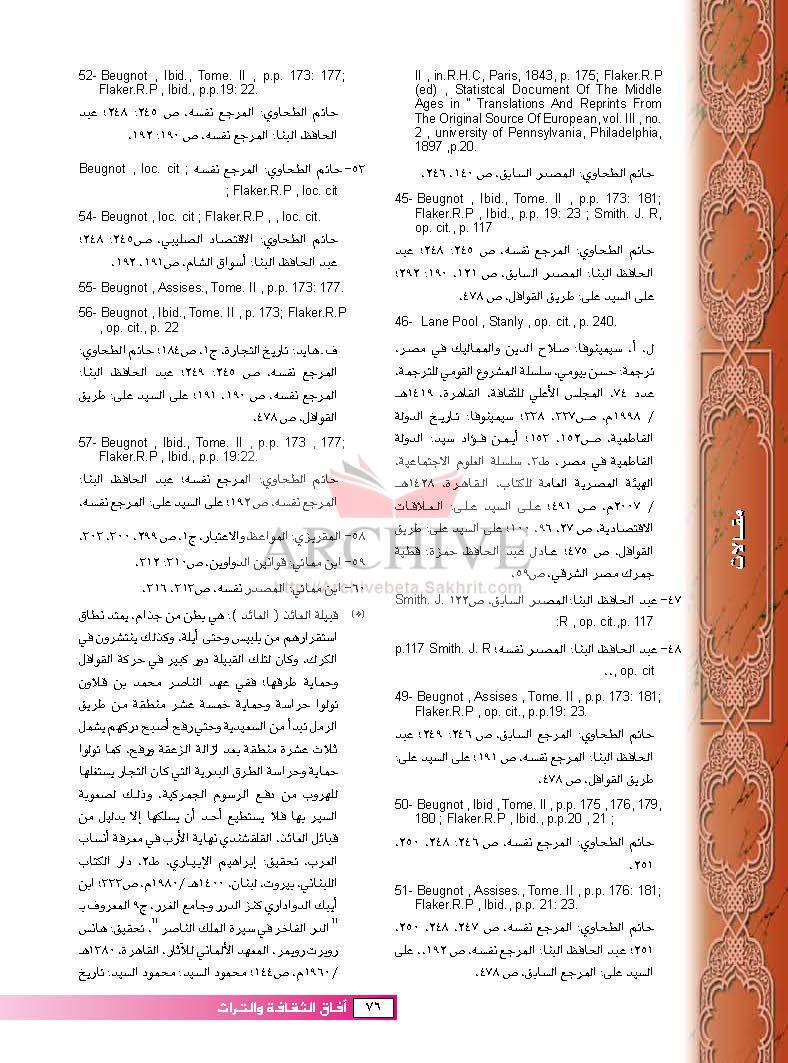 II , in.R.H.C, Paris, 1843, p. 175; Flaker.R.P
(ed) , Statistcal Document Of The Middle
Ages in " Translations And Reprints From
The Original Source Of European, vol. III , no.
2 , university of Pennsylvania, Philadelphia,
1897 ,p.20.
حاتم الطحاوي: المصدر السابق، ص ١٤٠، ٢٤٦.
45- Beugnot , Ibid., Tome. II , p.p. 173: 181;
Flaker.R.P , Ibid., p.p. 19: 23 ; Smith. J. R,
op. cit., p. 117
حاتم الطحاوي: المرجع نفسه، ص ٢٤٥: ٢٤٨؛ عبد
الحافظ البنا: المصدر السابق، ص ١٢١، ١٩٠: ٢٩٢؛
على السيد على: طريق القوافل، ص ٤٧٨.
46- Lane Pool , Stanly , op. cit., p. 240.
ل. أ. سيمينوفا: صلاح الدين والمماليك في مصر،
ترجمة: حسن بيومي، سلسلة المشروع القومي للترجمة،
عدد ٧٤، المجلس الأعلي للثقافة، القاهرة، ١٤١٩هـ
/ ١٩٩٨م، ص٢٣٧، ٢٣٨؛ سيمينوفا: تاريخ الدولة
الفاطمية، ص١٥٢، ١٥٣؛ أيمن فؤاد سيد: الدولة
الفاطمية في مصر، ط٢، سلسلة العلوم الاجتماعية،
الهيئة المصرية العامة للكتاب، القاهرة، ١٤٢٨هـ
/ ٢٠٠٧م، ص ٤٩١؛ على السيد على: العلاقات
الاقتصادية، ص ٢٧، ٩٦، ١٠٠؛ على السيد على: طريق
القوافل، ص ٤٧٥؛ عادل عبد الحافظ حمزة: قطية
جمرك مصر الشرقي، ص٥٩.
٤٧- عبد الحافظ البنا:المصدر السابق، ص١٢٢ Smith. J.
R , op. cit.,p. 117:
٤٨- عبد الحافظ البنا: المصدر نفسه؛ p.117 Smith. J. R
op. cit ,..
49- Beugnot , Assises , Tome. II , p.p. 173: 181;
Flaker.R.P , op. cit., p.p.19: 23.
حاتم الطحاوي: المرجع السابق، ص ٢٤٦: ٢٤٩؛ عبد
الحافظ البنا: المرجع نفسه، ص ١٩١؛ على السيد على:
طريق القوافل، ص ٤٧٨.
50- Beugnot , Ibid ,Tome. II , p.p. 175 ,176, 179,
180 ; Flaker.R.P , Ibid., p.p.20 , 21 ;
حاتم الطحاوي: المرجع نفسه، ص ٢٤٦: ٢٤٨، ٢٥٠،
٢٥١.
51- Beugnot , Assises., Tome. II , p.p. 176: 181;
Flaker.R.P , Ibid., p.p. 21: 23.
حاتم الطحاوي: المرجع نفسه، ص ٢٤٧، ٢٤٨، ٢٥٠،
٢٥١؛ عبد الحافظ البنا: المرجع نفسه، ص ١٩٢،. على
السيد على: المرجع السابق، ص ٤٧٨.
52- Beugnot , Ibid., Tome. II , p.p. 173: 177;
Flaker.R.P , Ibid., p.p.19: 22.
حاتم الطحاوي: المرجع نفسه، ص ٢٤٥: ٢٤٨؛ عبد
الحافظ البنا: المرجع نفسه، ص ١٩٠: ١٩٢.
٥٣- حاتم الطحاوي: المرجع نفسه ; Beugnot , loc. cit
; Flaker.R.P , loc. cit
54- Beugnot , loc. cit ; Flaker.R.P , , loc. cit.
حاتم الطحاوي: الاقتصاد الصليبي، ص٢٤٥: ٢٤٨؛
عبد الحافظ البنا: أسواق الشام، ص١٩١، ١٩٢.
55- Beugnot , Assises., Tome. II , p.p. 173: 177.
56- Beugnot , Ibid., Tome. II , p. 173; Flaker.R.P
, op. cit., p. 22
ف.هايد: تاريخ التجارة، ج١، ص١٨٤؛ حاتم الطحاوي:
المرجع نفسه، ص ٢٤٥: ٢٤٩؛ عبد الحافظ البنا:
المرجع نفسه، ص ١٩٠، ١٩١؛ على السيد على: طريق
القوافل، ص ٤٧٨.
57- Beugnot , Ibid., Tome. II , p.p. 173 , 177;
Flaker.R.P , Ibid., p.p. 19:22.
حاتم الطحاوي: المرجع نفسه؛ عبد الحافظ البنا:
المرجع نفسه، ص ١٩٢؛ على السيد على: المرجع نفسه.
٥٨- المقريزي: المواعظ والاعتبار، ج١، ص ٢٩٩، ٣٠٠، ٣٠٣.
٥٩- ابن مماتي: قوانين الدواوين، ص٣١٠: ٣١٢.
٦٠- ابن مماتي: المصدر نفسه، ص ٣١٣، ٣١٦.
(*) قبيلة العائذ ( العائد ): هي بطن من جذام، يمتد نطاق
استقرارهم من بلبيس وحتى أيلة، وكذلك ينتشرون في
الكرك، وكان لتلك القبيلة دور كبير في حركة القوافل
وحماية طرقها؛ ففي عهد الناصر محمد بن قلاون
تولوا حراسة وحماية خمسة عشر منطقة من طريق
الرمل تبدأ من السعيدية وحتي رفح أصبح دركهم يشمل
ثلاث عشرة منطقة بعد ازالة الزعقة ورفح، كما تولوا
حماية وحراسة الطرق البدرية التي كان التجار يستغلها
للهروب من دفع الرسوم الجمركية، وذلك لصعوبة
السير بها فلا يستطيع أحد أن يسلكها إلا بدليل من
قبائل العائذ، القلقشندي نهاية الأرب في معرفة أنساب
العرب، تحقيق: إبراهيم الإبياري، ط٢، دار الكتاب
اللبناني، بيروت، لبنان، ١٤٠٠هـ /١٩٨٠م، ص٣٣٢؛ ابن
أيبك الدواداري كنز الدرر وجامع الغرر، ج٩ المعروف بـ
" الدر الفاخر في سيرة الملك الناصر "، تحقيق: هانس
روبرت رويمر، المعهد الألماني للآثار، القاهرة، ١٣٨٠هـ
/١٩٦٠م، ص١٤٤؛ محمود السيد: محمود السيد: تاريخ
مقالات
ARCHIVE
http://Archivebeta.Sakhrit.com
٧٦ آفاق الثقافة والتراث